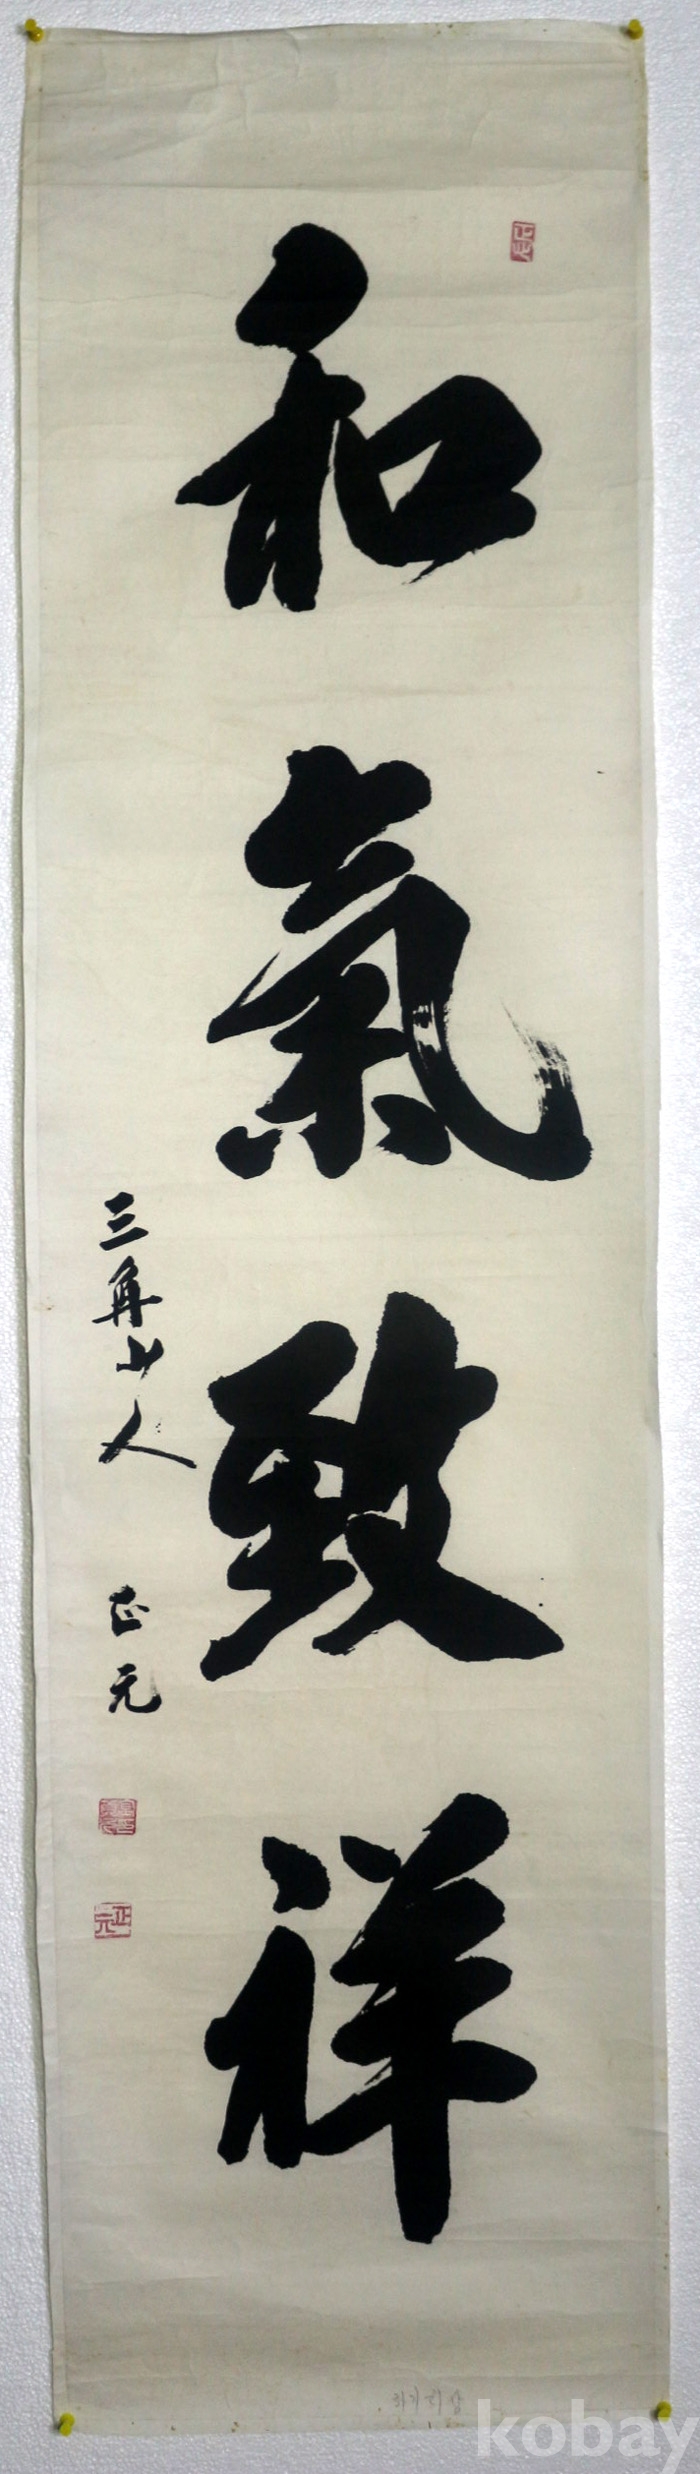 和氣致祥
三角山人 正元
正心
正元
화기치상
kobay